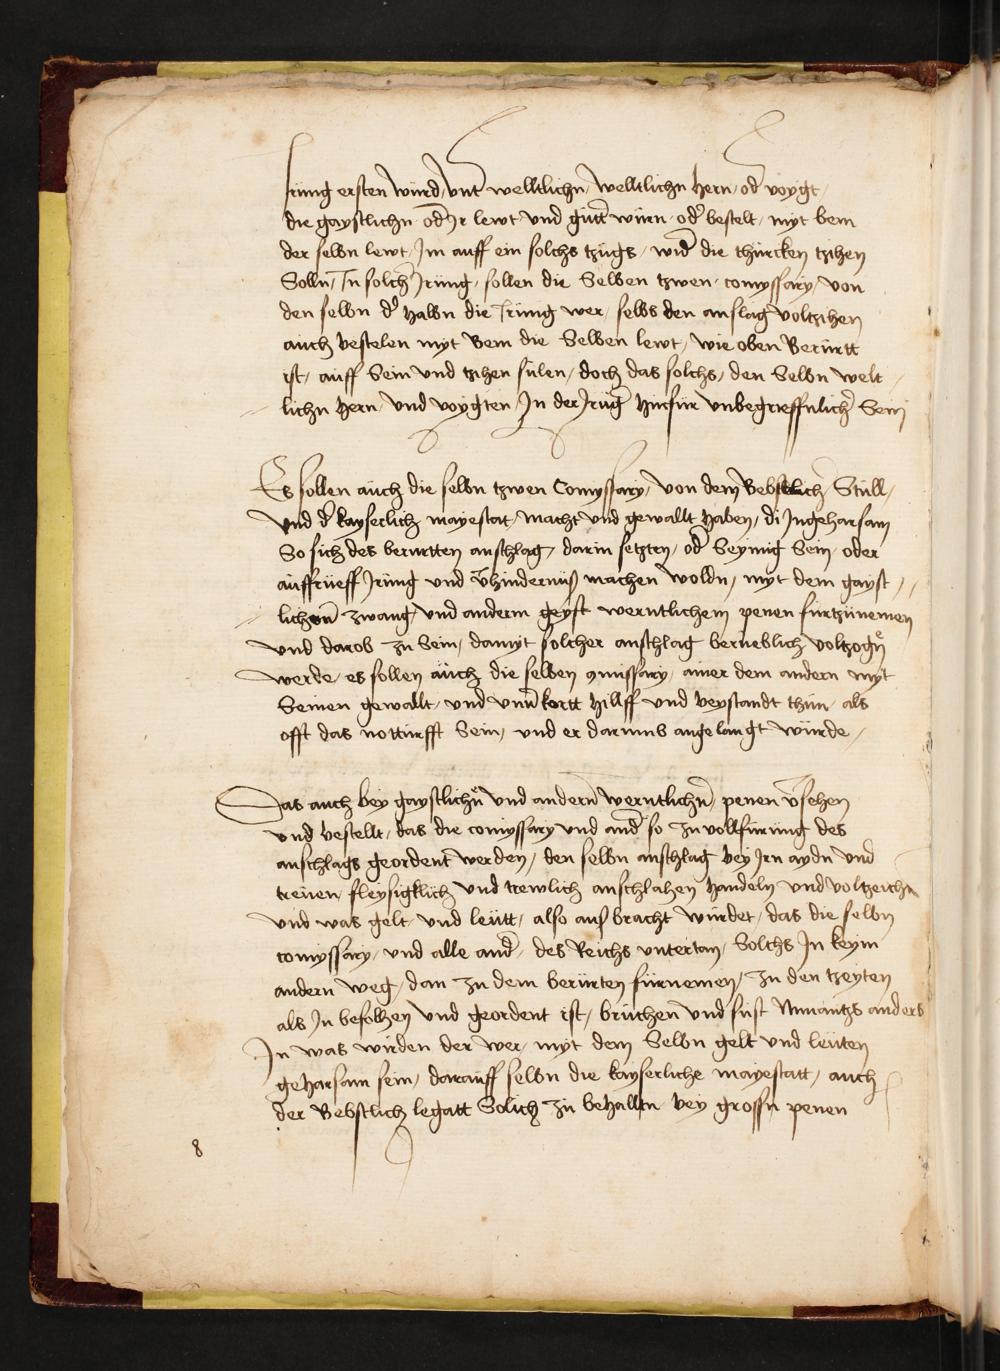 Irüng ersten würd, vnt̄ welltlichn, welltlichn hern, od̄ voÿgt,
die gaystlichn od̄ Jr lewt vnd gütt̄ würn, od̄ bestelt, myt bem
der selbn lewt, Jm auff ein solchs tzügs, wid̄ die thürcken tzihen
Solln, In solch̄ Jrüng, sollen die Selben tzwen, comyssary, von
den selbn d̄ halbn die Irüng wer, selbs den anslag voltzihen
auch bestelen myt Bem die Selben lewt, wie oben Berürtt
ist, auff Sein vnd tzihen sülen, doch das solchs, den Selbn welt
lichn hern, vnd voÿgten, Jn der Jrūg hinfür vnbegrieffnlich̄ Sein
Es sollen aüch die selbn tzwen Comyssary, von dem Bebstlich Stüll,
vnd d̄ kayserlich mayestat, macht vnd gewallt haben, di Jngeharsam
So sich des berurtten anschlag, darin setzten, od̄ Seÿmig Sein, oder
aüffrüeff Jrüng vnd v̄hindernüß machen woldn, myt dem gayst
lichem zwang, vnd anderm geyst werntlichem penen fürtzünemen
vnd darob zu Sein, damyt solcher anschlag berueblich voltzogn̄
werde, es sollen aüch die selben 9missary, ainer dem andern myt
Seinen gewallt, vnd vnūkortt hillff vnd beystandt thün, als
offt das nottürfft Sein, vnd er darumb angelangt würde,
Das auch bey gaystlichn̄ vnd andern̄ werntlichn̄, penen v̄sehen
vnd bestellt, das die comyssary vnd and̄ so zu vollfürüng des
anschlags geordent werden, den selbn anschlag bey Jrn aydn vnd
treüen, fleysigklich vnd trewlich anschlahen handeln vnd voltzeichn
vnd was gelt, vnd leütt, also auß bracht würdet, das die selbn
comyssary, vnd alle and̄, des Reichs vntertan, Solchs Jn keym
andern weg, dan zu dem berürten fürnemen, zu den tzeyten
als Jn befolhen vnd geordent ist, brüchen vnd süst Nimantzs anders
Jn was wirden der wer, myt dem Selbn gelt vnd leüten
geharsam sein, darauff selbn die kayserliche mayestatt, auch
der Bebstlich legatt Solich zu behallten bey grossn penen
8